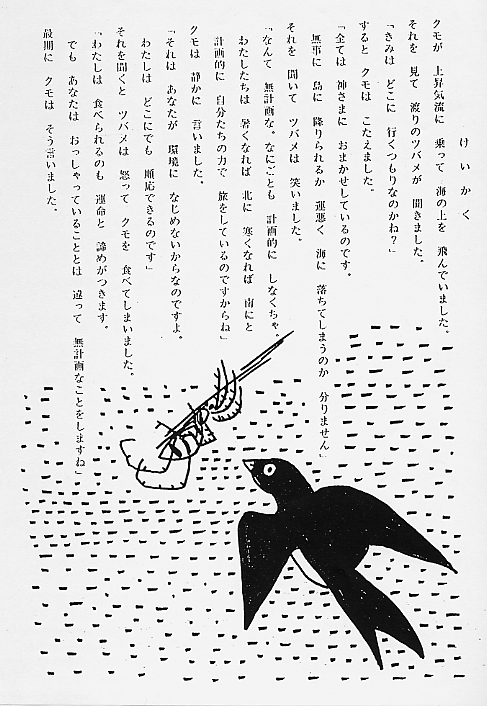 けいかく
クモが 上昇気流に 乗って 海の上を 飛んでいました。
それを 見て 渡りのツバメが 聞きました。
「きみは どこに 行くつもりなのかね?」
すると クモは こたえました。
「全ては 神さまに おまかせしているのです。
無事に 島に 降りられるか 運悪く 海に 落ちてしまうのか 分りません」
それを 聞いて ツバメは 笑いました。
「なんて 無計画な。なにごとも 計画的に しなくちゃ。
わたしたちは 暑くなれば 北に 寒くなれば 南にと
計画的に 自分たちの力で 旅をしているのですからね」
クモは 静かに 言いました。
「それは あなたが 環境に なじめないからなのですよ。
わたしは どこにでも 順応できるのです」
それを聞くと ツバメは 怒って クモを 食べてしまいました。
「わたしは 食べられるのも 運命と 諦めがつきます。
でも あなたは おっしゃっていることとは 違って 無計画なことをしますね」
最期に クモは そう言いました。